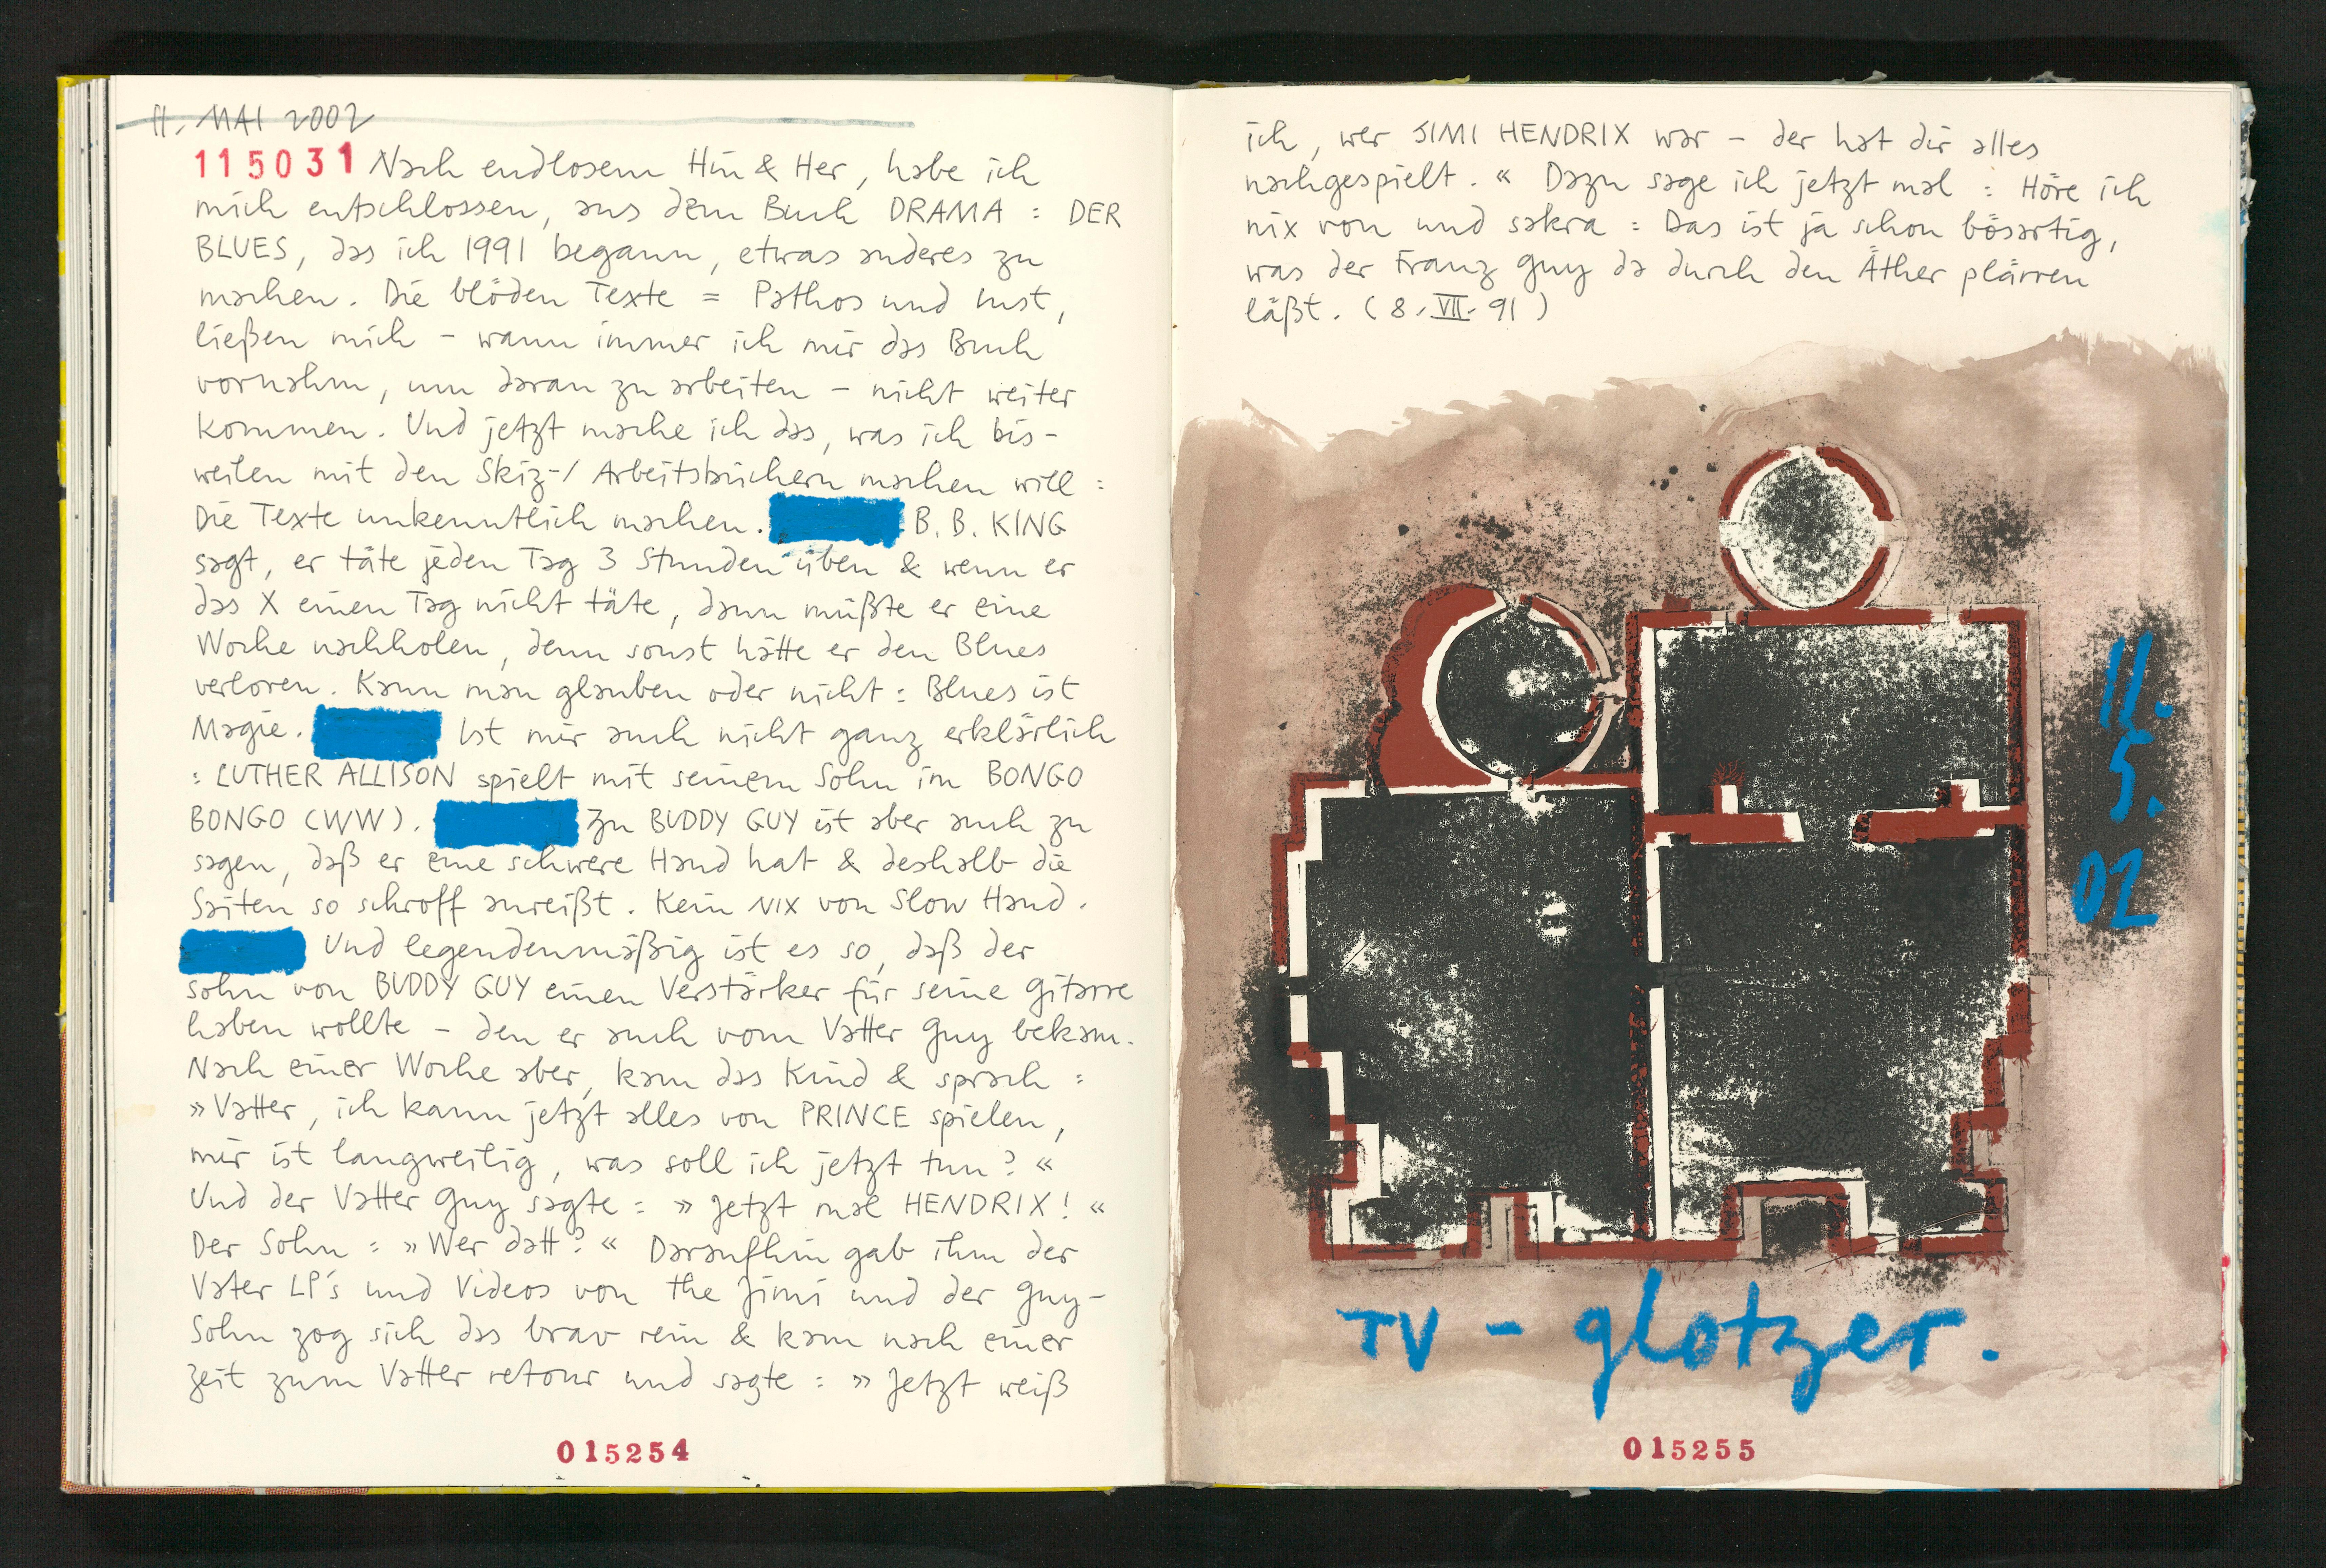 11. MAI 2002
115031 Nach endlosem Hin & Her, habe ich
mich entschlossen, aus dem Buch DRAMA : DER
BLUES, das ich 1991 begann, etwas anderes zu
machen. Die blöden Texte = Pathos und Lust,
ließen mich - wann immer ich mir das Buch
vornahm, um daran zu arbeiten - nicht weiter
kommen. Und jetzt mache ich das, was ich bis-
weilen mit den Skiz-/ Arbeitsbüchern machen will :
Die Texte unkenntlich machen. B. B. KING
sagt, er täte jeden Tag 3 Stunden üben & wenn er
das X einen Tag nicht täte, dann müßte er eine
Woche nachholen, denn sonst hätte er den Blues
verloren. Kann man glauben oder nicht : Blues ist
Magie. Ist mir auch nicht ganz erklärlich
: LUTHER ALLISON spielt mit seinem Sohn im BONGO
BONGO (WW). Zu BUDDY GUY ist aber auch zu
sagen, daß er eine schwere Hand hat & deshalb die
Saiten so schroff anreißt. Kein NIX von Slow Hand.
Und legendenmäßig ist es so, daß der
Sohn von BUDDY GUY einen Verstärker für seine Gitarre
haben wollte - den er auch vom Vatter Guy bekam.
Nach einer Woche aber, kam das Kind & sprach :
»Vatter, ich kann jetzt alles von PRINCE spielen,
mir ist langweilig, was soll ich jetzt tun? «
Und der Vatter Guy sagte : » Jetzt mal HENDRIX! «
Der Sohn : »Wer datt? « Daraufhin gab ihm der
Vater LP's und Videos von the Jimi und der Guy-
Sohn zog sich das brav rein & kam nach einer
Zeit zum Vatter retour und sagte : » Jetzt weiß
015254
ich, wer JIMI HENDRIX war - der hat dir alles
nachgespielt. « Dazu sage ich jetzt mal : Höre ich
nix von und sakra : Das ist ja schon bösartig,
was der Franz Guy da durch den Äther plärren
läßt. ( 8. VII. 91 )
11.
5.
02
TV - glotzer.
015255